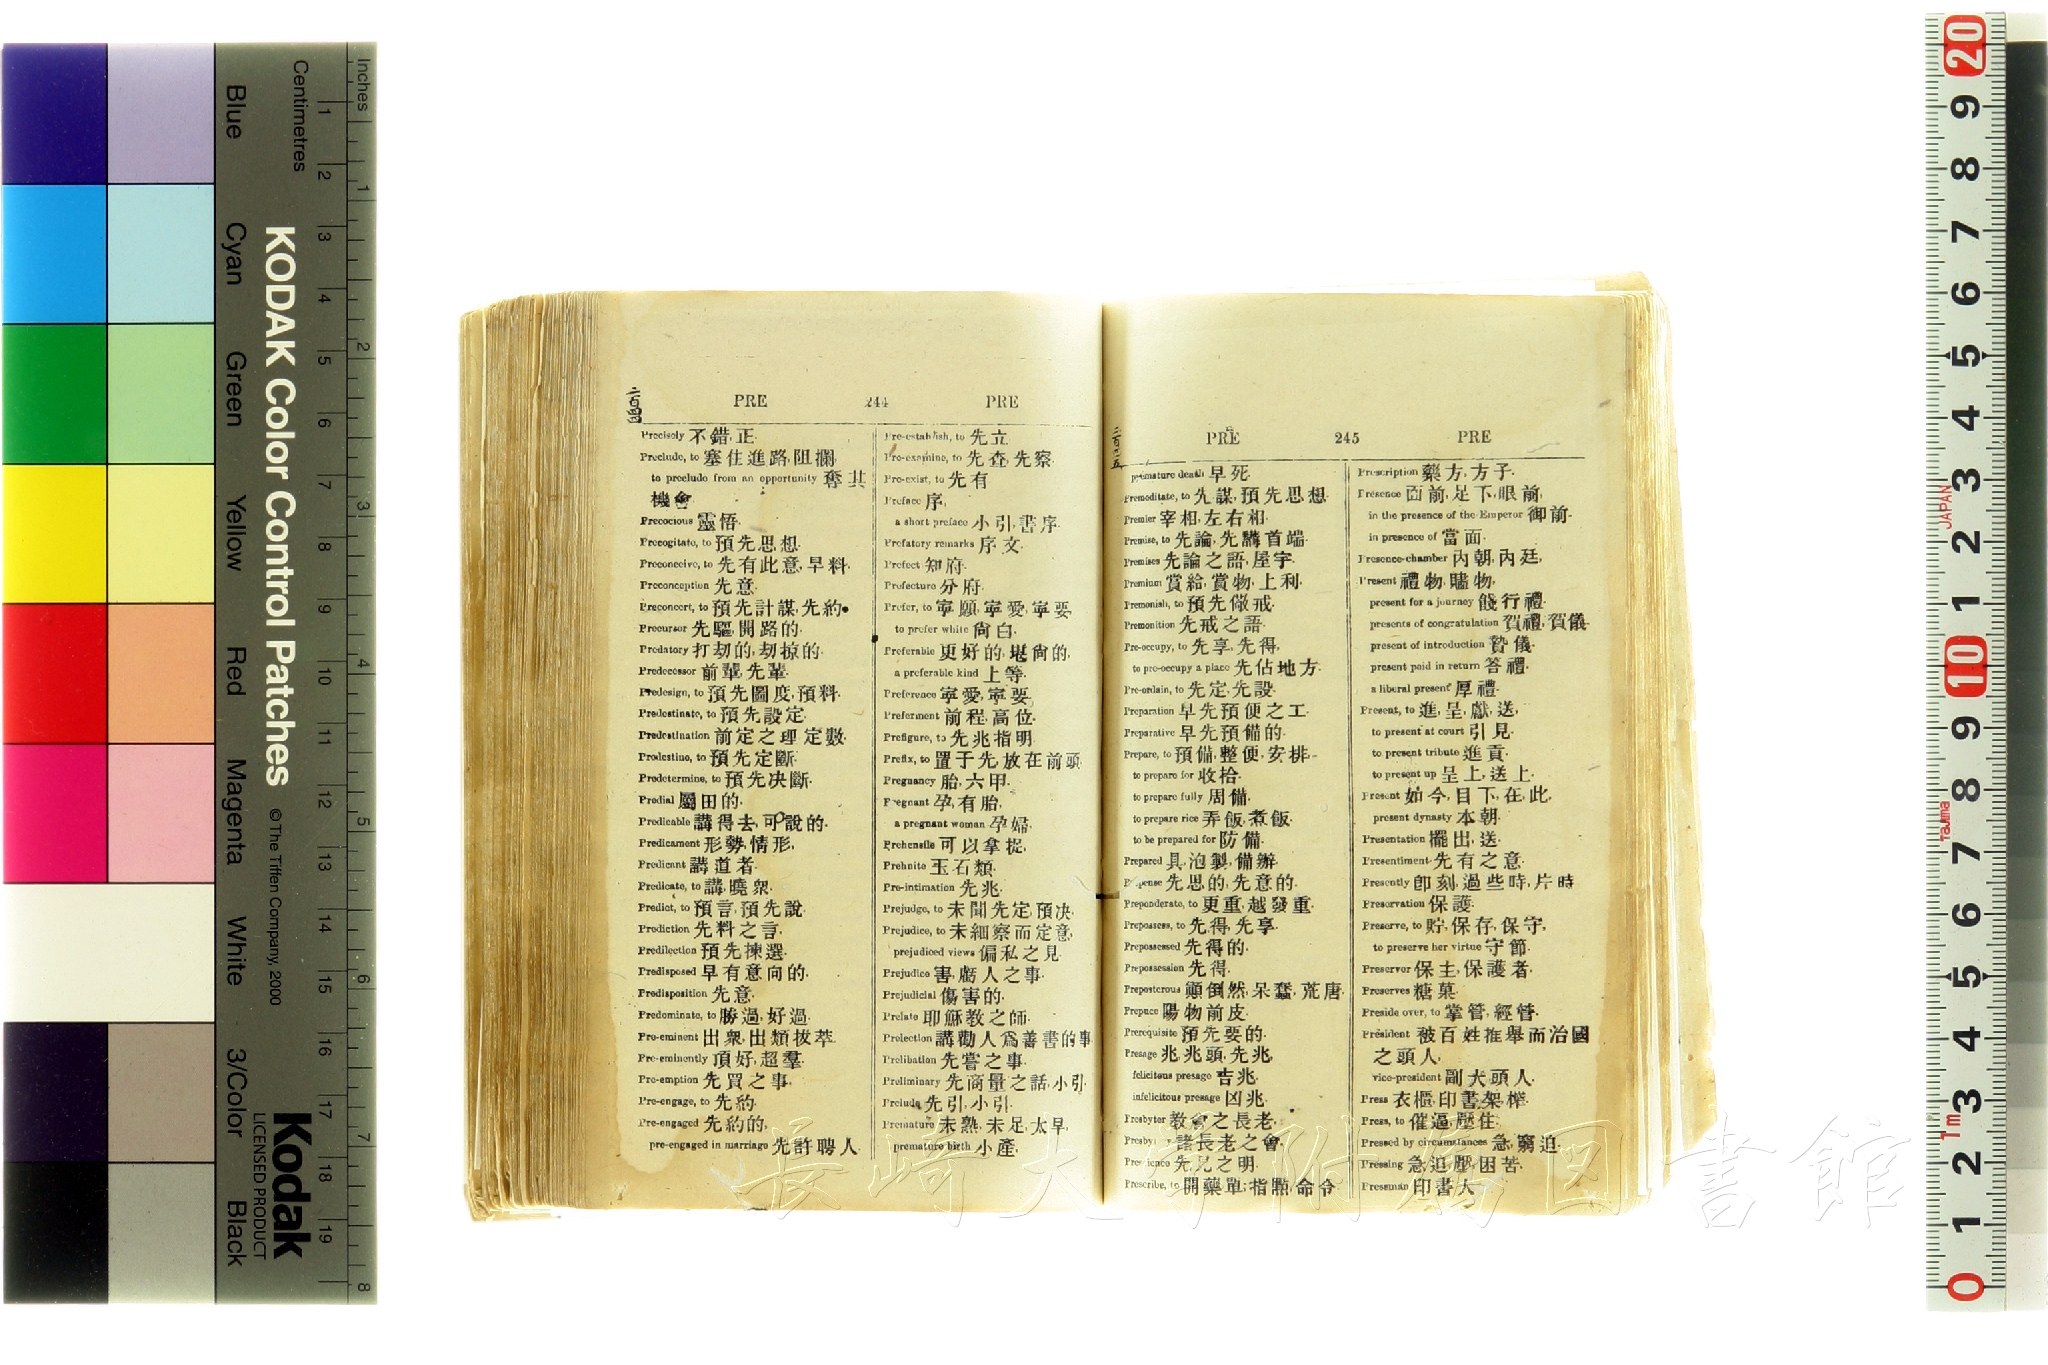 Inches
Centimetres
KODAK Color Control Patches
© The Tiffen Company, 2000
Kodak
LICENSED PRODUCT
Blue
Cyan
Green
Yellow
Red
Magenta
White
3/Color
Black
二百四四
PRE 244 PRE
Precisely 不錯,正.
Preclude, to 塞住進路,阻攔.
to preclude from an opportunity 奪其
機會.
Precocious 靈悟.
Precogitate, to 預先思想.
Preconceive, to 先有此意,早料.
Preconception 先意.
Preconcert, to 預先計謀,先約.
Precursor 先驅,開路的.
Predatory 打刧的,刧掠的.
Predecessor 前輩,先輩.
Predesign, to 預先圖度,預料.
Predestinate, to 預先設定.
Predestination 前定之理,定數.
Predestine, to 預先定斷.
Predetermine, to 預先决斷.
Predial 屬田的.
Predicable 講得去,可說的.
Predicament 形勢,情形,
Predicant 講道者.
Predicate, to 講,曉衆.
Predict, to 預言,預先說.
Prediction 先料之言.
Predilection 預先揀選.
Predisposed 早有意向的.
Predisposition 先意.
Predominate, to 勝過,好過.
Pre-eminent 出衆,出類拔萃.
Pre-eminently 頂好,超羣.
Pre-emption 先買之事.
Pre-engage, to 先約.
Pre-engaged 先約的,
pre-engaged in marriage 先許聘人.
Pre-establish, to 先立
Pre-examine, to 先查,先察.
Pre-exist, to 先有
Preface 序,
a short preface 小引,書序.
Prefatory remarks 序文.
Prefect 知府.
Prefecture 分府.
Prefer, to 寧願,寧愛,寧要.
to prefer white 尙白.
Preferable 更好的,堪尙的,
a preferable kind 上等.
Preference 寧愛,寧要.
Preferment 前程,高位.
Prefigure, to 先兆指明.
Prefix, to 置于先,放在前頭.
Pregnancy 胎,六甲.
Pregnant 孕,有胎,
a pregnant woman 孕婦.
Prehensile 可以拿捉,
Prehnite 玉石類.
Pre-intimation 先兆.
Prejudge, to 未聞先定,預决.
Prejudice, to 未細察而定意,
prejudiced views 偏私之見.
Prejudice 害,虧人之事.
Prejudicial 傷害的.
Prelate 耶穌敎之師.
Prelection 講勸人爲善書的事
Prelibation 先嘗之事.
Preliminary 先商量之話,小引.
Prelude 先引,小引.
Premature 未熟,未足,太早,
premature birth 小產,
二百四五
PRE 245 PRE
premature death 早死.
Premeditate, to 先謀,預先思想.
Premier 宰相,左右相.
Premise, to 先論,先講首端.
Premises 先論之語,屋宇.
Premium 賞給,賞物,上利.
Premonish, to 預先儆戒.
Premonition 先戒之語.
Pre-occupy, to 先享,先得,
to pre-occupy a place 先佔地方.
Pre-ordain, to 先定,先設.
Preparation 早先預便之工.
Preparative 早先預備的.
Prepare, to 預備,整便,安排.
to prepare for 收拾.
to prepare fully 周備.
to prepare rice 弄飯,煮飯.
to be prepared for 防備.
Prepared 具,泡製,備辦.
先思的,先意的.
Preponderate, to 更重,越發重.
Prepossess, to 先得,先享.
Prepossessed 先得的.
Prepossession 先得.
Preposterous 顚倒然,呆蠢,荒唐.
Prepuce 陽物前皮.
Prerequisite 預先要的.
Presage 兆,兆頭,先兆,
felicitous presage 吉兆.
infelicitous presage 凶兆.
Presbyter 敎會之長老.
諸長老之會.
Prescience 先見之明.
Prescribe, to 開藥單,指點,命令
Prescription 藥方,方子.
Presence 面前,足下,眼前,
in the presence of the Emperor 御前.
in presence of 當面.
Presence-chamber 內朝,內廷,
Present 禮物,賮物,
present for a journey 餞行禮.
presents of congratulation 賀禮,賀儀.
present of introduction 贄儀.
present paid in return 答禮.
a liberal present 厚禮.
Present, to 進,呈,獻,送,
to present at court 引見.
to present tribute 進貢.
to present up 呈上,送上.
Present 如今,目下,在,此,
present dynasty 本朝.
Presentation 擺出,送.
Presentiment 先有之意.
Presently 卽刻,過些時,片時.
Preservation 保護.
Preserve, to 貯,保存,保守,
to preserve her virtue 守節.
Preserver 保主,保護者.
Preserves 糖菓.
Preside over, to 掌管,經管.
President 被百姓推舉而治國
之頭人,
vice-president 副大頭人.
Press 衣櫃,印書架,榨.
Press, to 催逼,壓住.
Pressed by circumstances 急,窮迫.
Pressing 急迫,壓,困苦.
Pressman 印書人
長崎大学附属図書館
JAPAN
Tajima
1m